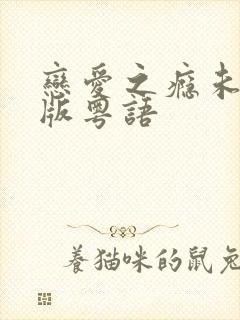 戀愛之癮未
版粵語
養貓咪的鼠兔